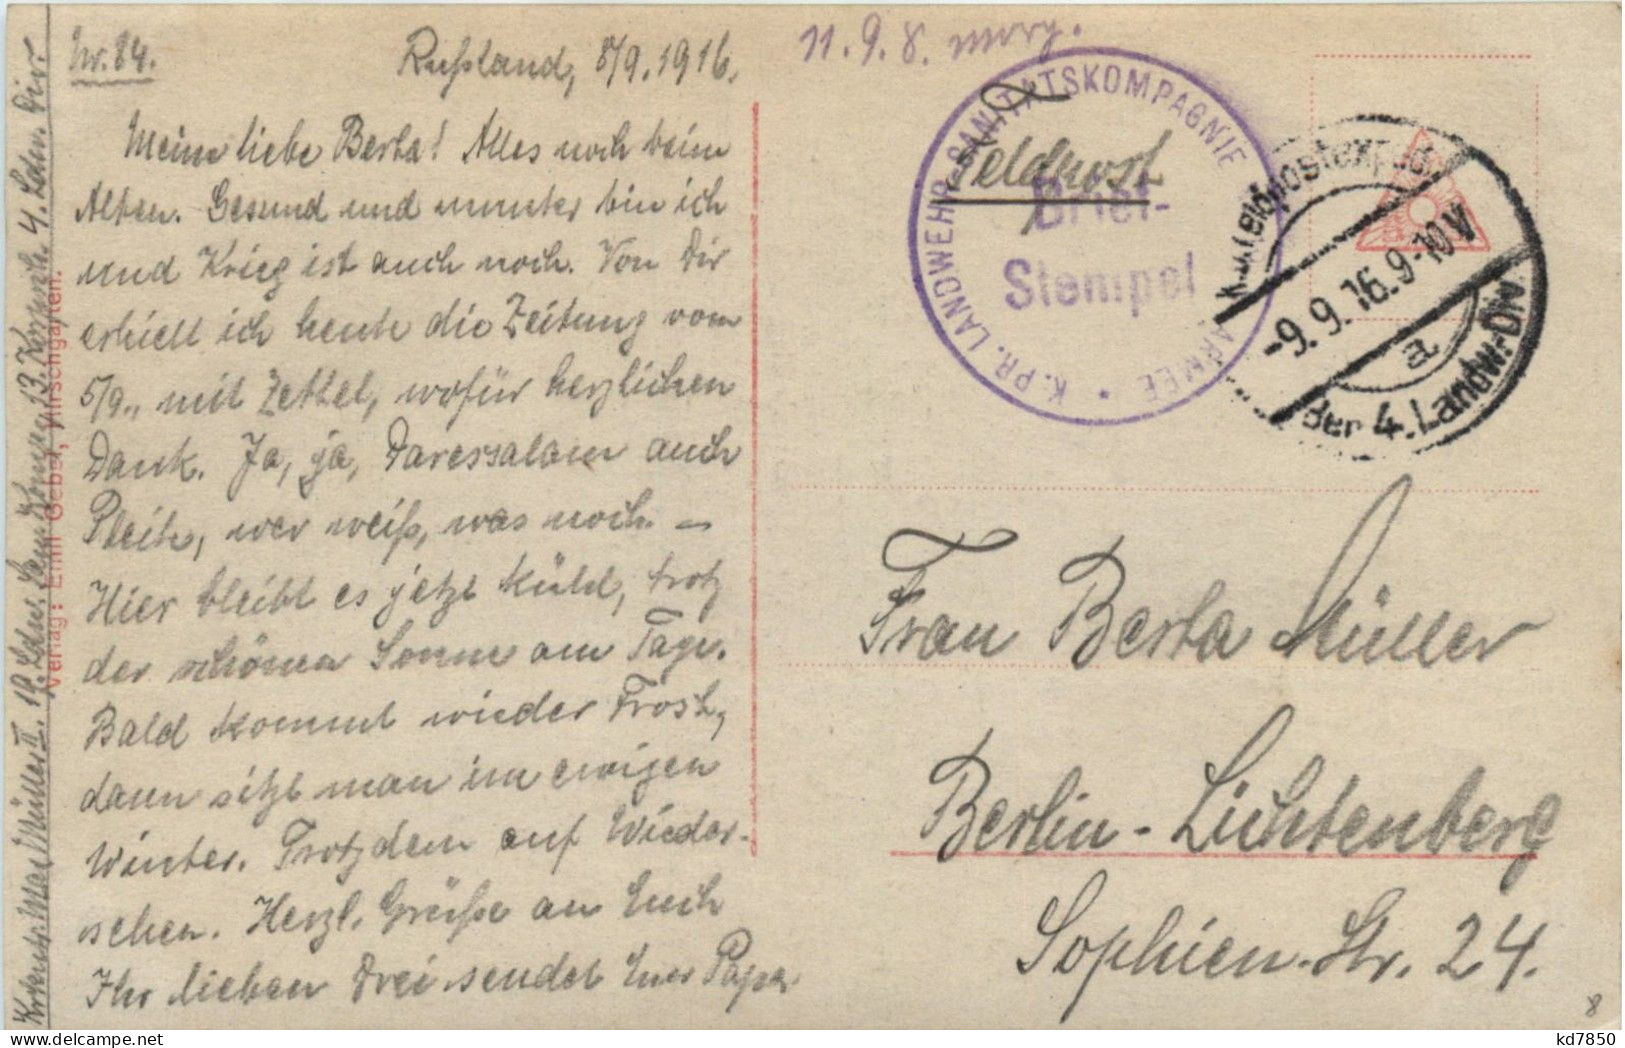 Nr. 84.
Rußland, 8/9. 1916.
Meine liebe Berta! Alles noch beim
Alten. Gesund und munter bin ich
und Krieg ist auch noch. Von Dir
erhielt ich heute die Zeitung vom
5/9., mit Zettel, wofür herzlichen
Dank. Ja, ja, Daressalam auch
Pleite, wer weiß, was noch. –
Hier bleibt es jetzt kühl, trotz
der schönen Sonne am Tage.
Bald kommt wieder Frost,
dann sitzt man im ewigen
Winter. Trotzdem auf Wieder-
sehen. Herzl. Grüße an Euch
Ihr lieben Drei sendet Euer Papa.
Max Müller II. 19. Ldw. 13. 4. Ldw. Div.
Verlag: Emil Gebel, Hirschgarten.
11. 9. 8. morg.
Feldpost
K. PR. LANDWEHR-SANITÄTSKOMPAGNIE
ARMEE
Brief-
Stempel
K.D. Feldpostexped.
-9. 9. 16. 9-10 V
a
der 4. Landw.-Div.
Frau Berta Müller
Berlin-Lichtenberg
Sophien-Str. 24.
8
kd7850